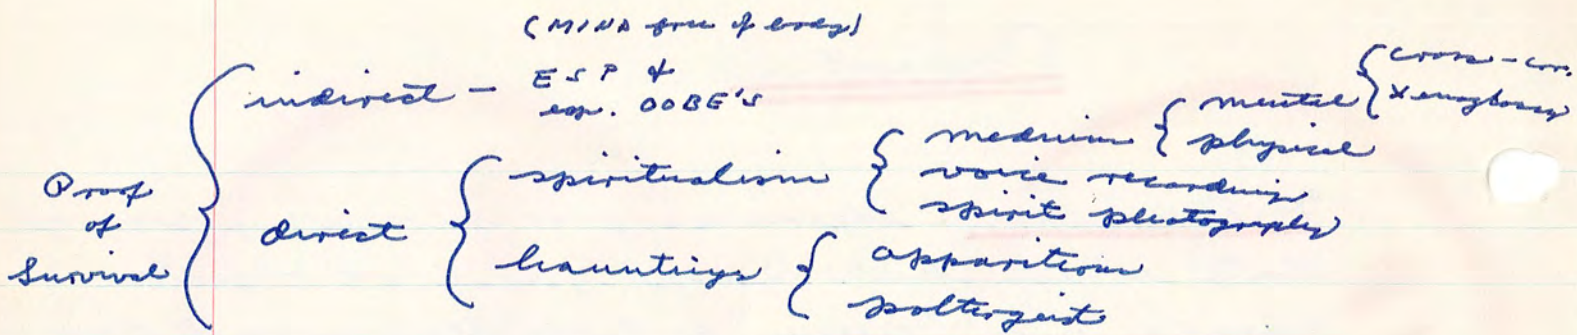 Proof
of
Survival
indirect -
(MIND free of body)
ESP &
esp. OOBE's
direct
spiritualism
medium
mental
cross-corr.
Xenoglossy
physical
voice recording
spirit photography
hauntings
apparitions
poltergeist